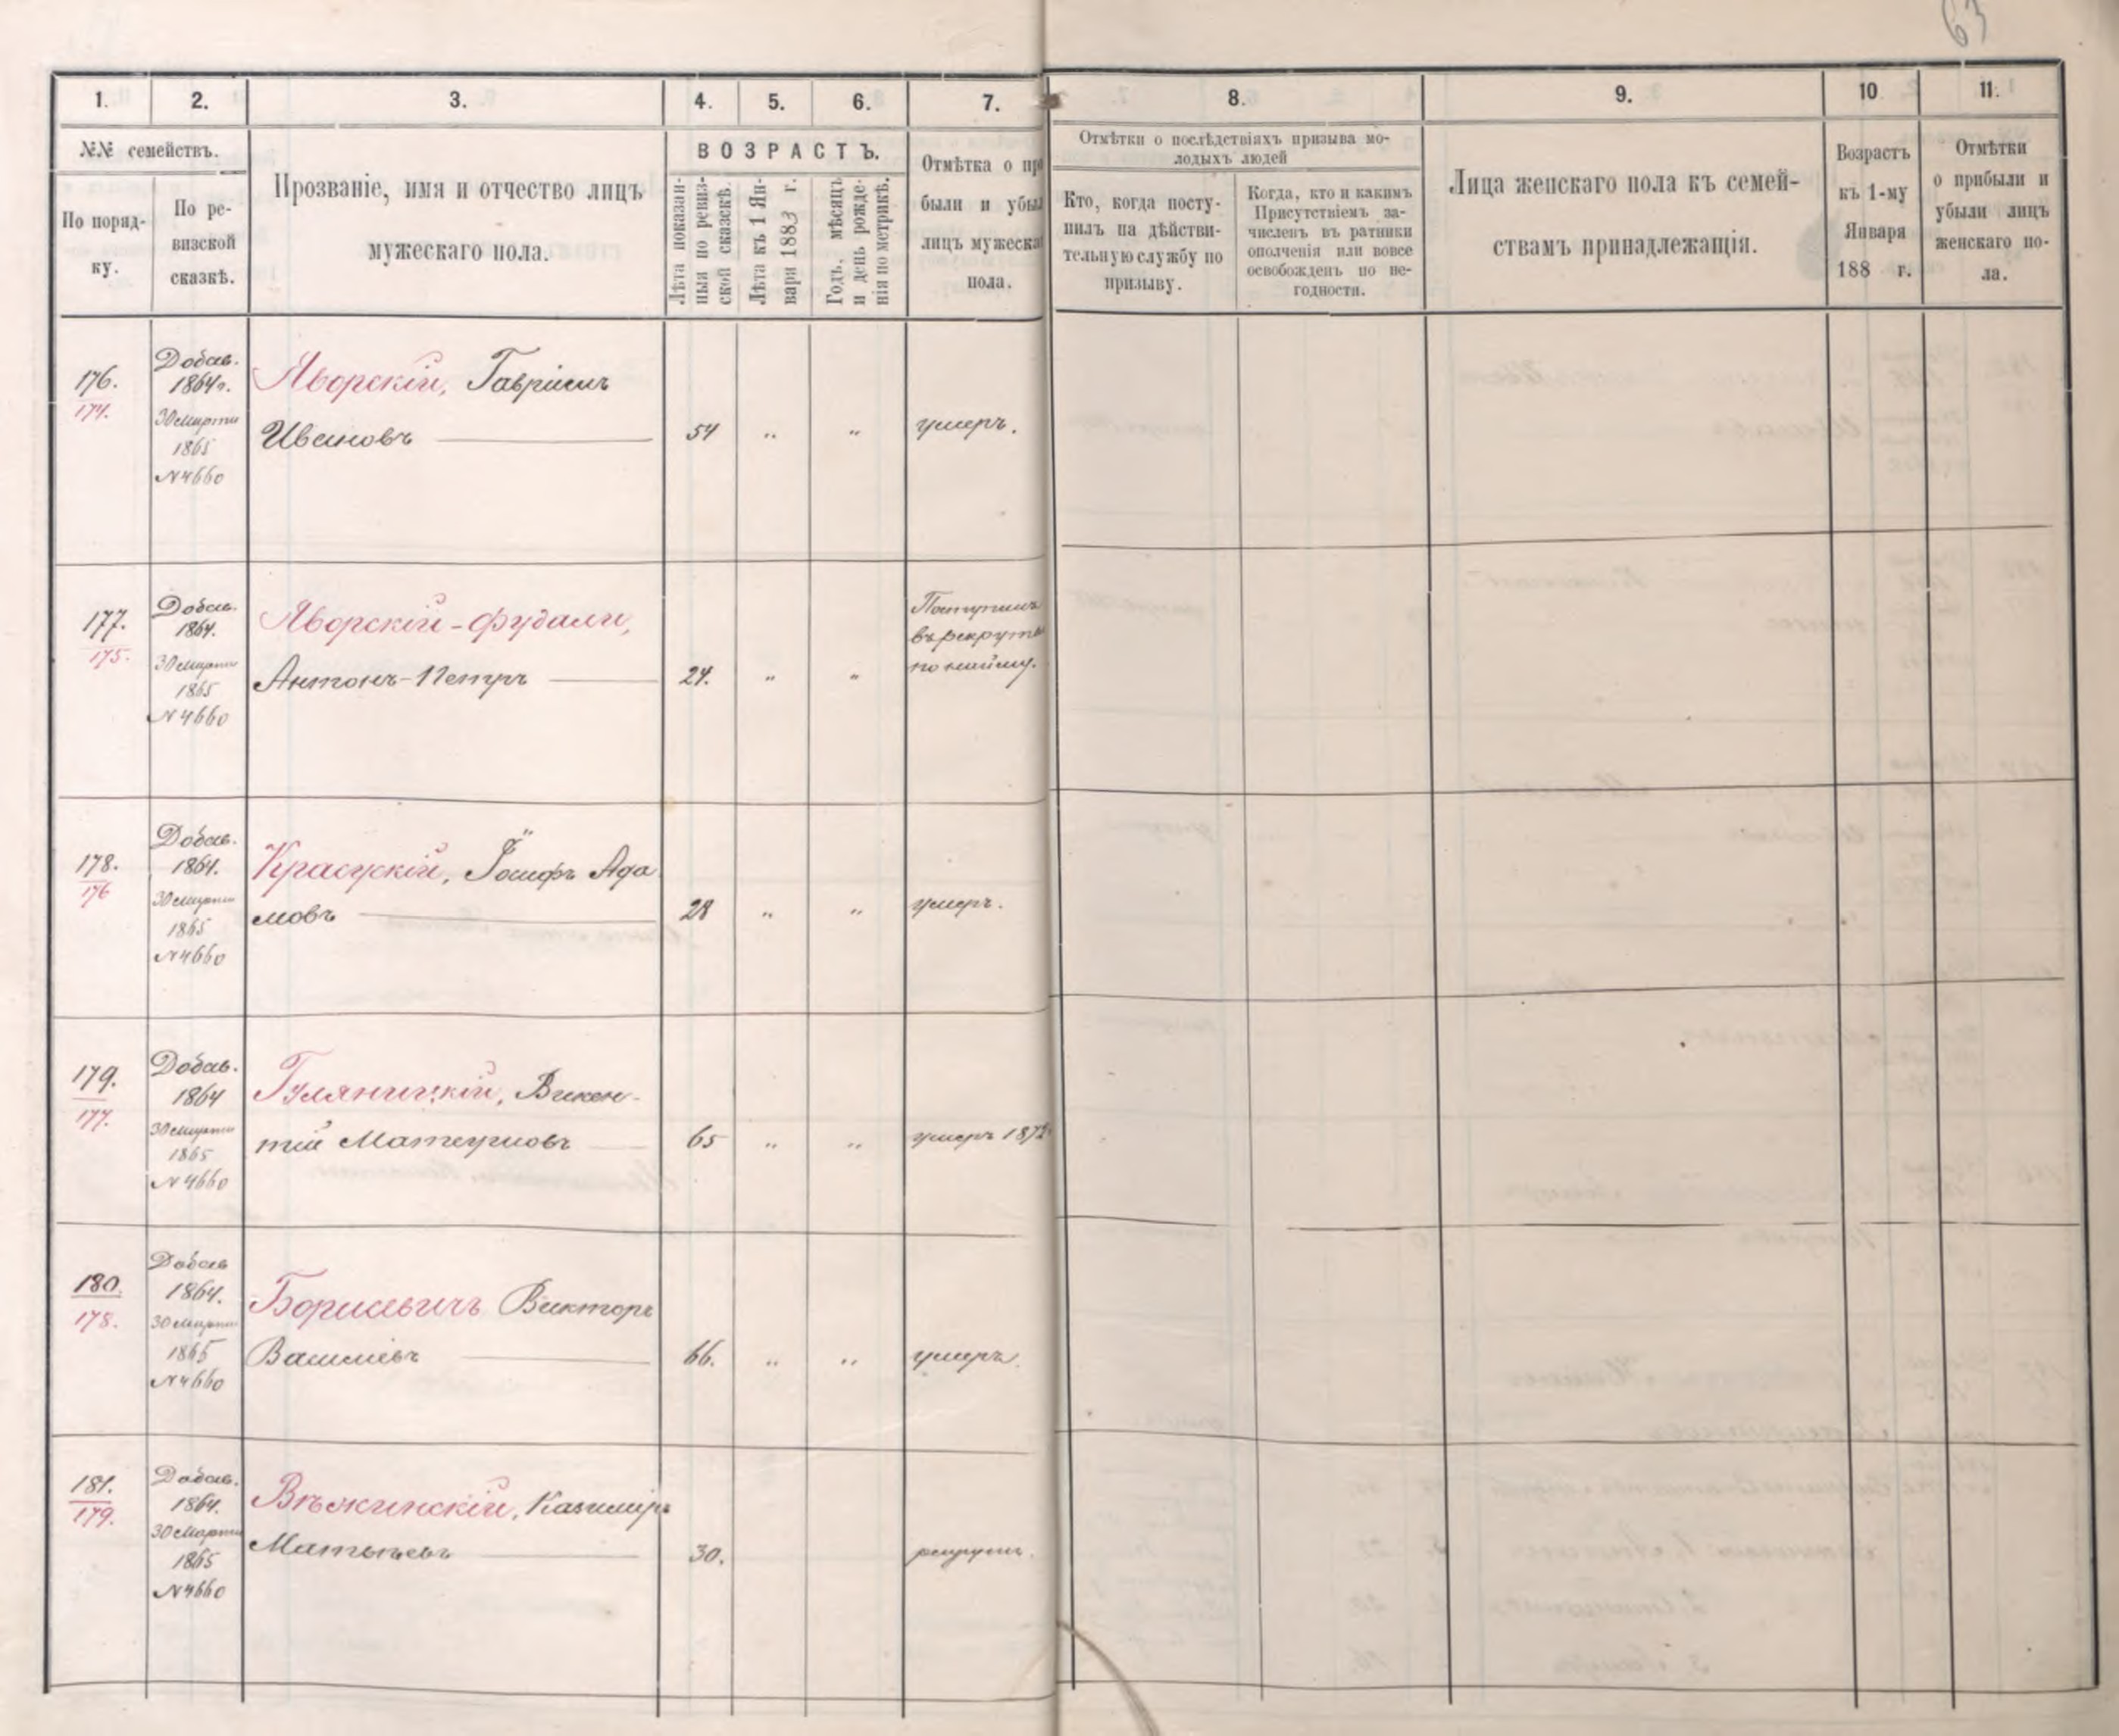 63
1. 2. 3. 4. 5. 6. 7. 8. 9. 10 11.
№№ семействъ.
По поряд-
ку.
По ре-
визской
сказкѣ.
Прозваніе, имя и отчество лицъ
мужескаго пола.
ВОЗРАСТЪ.
Лѣта показан-
ныя по ревиз-
ской сказкѣ.
Лѣта къ 1 Ян-
варя 1883 г.
Годъ, мѣсяцъ
и день рожде-
нія по метрикѣ.
Отмѣтка о при
были и убы
лицъ мужеска
пола.
Отмѣтки о послѣдствіяхъ призыва мо-
лодыхъ людей
Кто, когда посту-
пилъ на дѣйстви-
тельную службу по
призыву.
Когда, кто и какимъ
Присутствіемъ за-
численъ въ ратники
ополченія или вовсе
освобожденъ по не-
годности.
Лица женскаго пола къ семей-
ствамъ принадлежащія.
Возрастъ
къ 1-му
Января
188 г.
Отмѣтки
о прибыли и
убыли лицъ
женскаго по-
ла.
176.
174.
Добав.
1864г.
30 Марта
1865
№4660
Яворскій, Гавріилъ
Ивановъ 54 „ „ умеръ.
177.
175.
Добав.
1864.
30 Марта
1865
№4660
Яворскій-Фудали,
Антонъ-Петръ 24. „ „
Поступилъ
въ рекруты
по найму.
178.
176
Добав.
1864.
30 Марта
1865
№4660
Красускій, Іосифъ Ада
мовъ 28 „ „ умеръ.
179.
177.
Добав.
1864
30 Марта
1865
№4660
Гуляницкій, Викен-
тій Матеушовъ 65 „ „ умеръ 187
180.
178.
Добав
1864.
30 Марта
1865
№4660
Борисевичъ Викторъ
Васильевъ 66. „ „ умеръ.
181.
179.
Добав.
1864.
30 Марта
1865
№4660
Казиміръ
Матвѣевъ 30. рекрутъ.